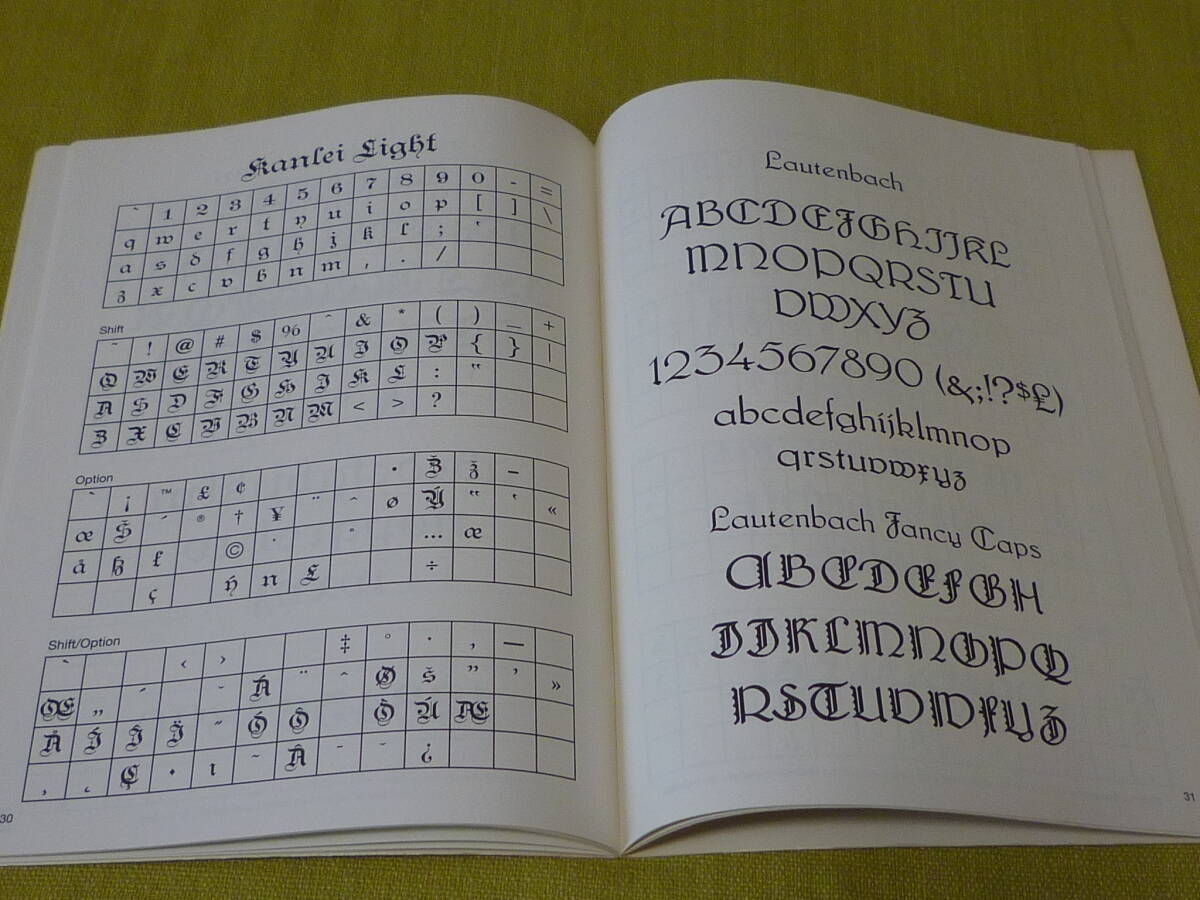 Kanlei Light
` 1 2 3 4 5 6 7 8 9 0 - =
q w e r t y u i o p [ ] \
a s d f g h j k l ; '
z x c v b n m , . /
Shift
~ ! @ # $ % ^ & * ( ) _ +
Q W E R T Y U I O P { } |
A S D F G H J K L : "
Z X C V B N M < > ?
Option
` ¡ ™ £ ¢ • – 
œ ´ ® † ¥ ¨ ˆ ø “ ‘ «
å © ˙ ˚ … æ
ç ÷
Shift/Option
` ‹ › ‡ ° · ‚ —
Œ „ ´ ¨ ˆ Ø ” ’ »
Æ
¸ ˛ Ç ı ˜ ¯ ˘ ¿
30
Lautenbach
ABCDEFGHIJKL
MNOPQRSTU
VWXYZ
1234567890 (&;!?$£)
abcdefghijklmnop
qrstuvwxyz
Lautenbach Fancy Caps
ABCDEFGH
IJKLMNOPQ
RSTUVWXYZ
31